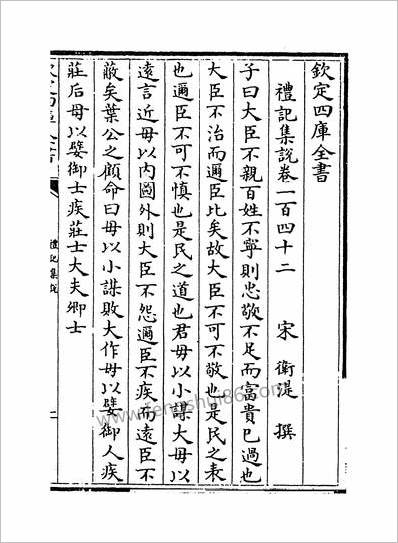 欽定四庫全書
禮記集說卷一百四十二 宋 衛湜 撰
子曰大臣不親百姓不寧則忠敬不足而富貴已過也
大臣不治而邇臣比矣故大臣不可不敬也是民之表
也邇臣不可不慎也是民之道也君毋以小謀大毋以
遠言近毋以内圖外則大臣不怨邇臣不疾而遠臣不
蔽矣葉公之顧命曰毋以小謀敗大作毋以嬖御人疾
莊后毋以嬖御士疾莊士大夫卿士
禮記集説
www.fengshui86.com